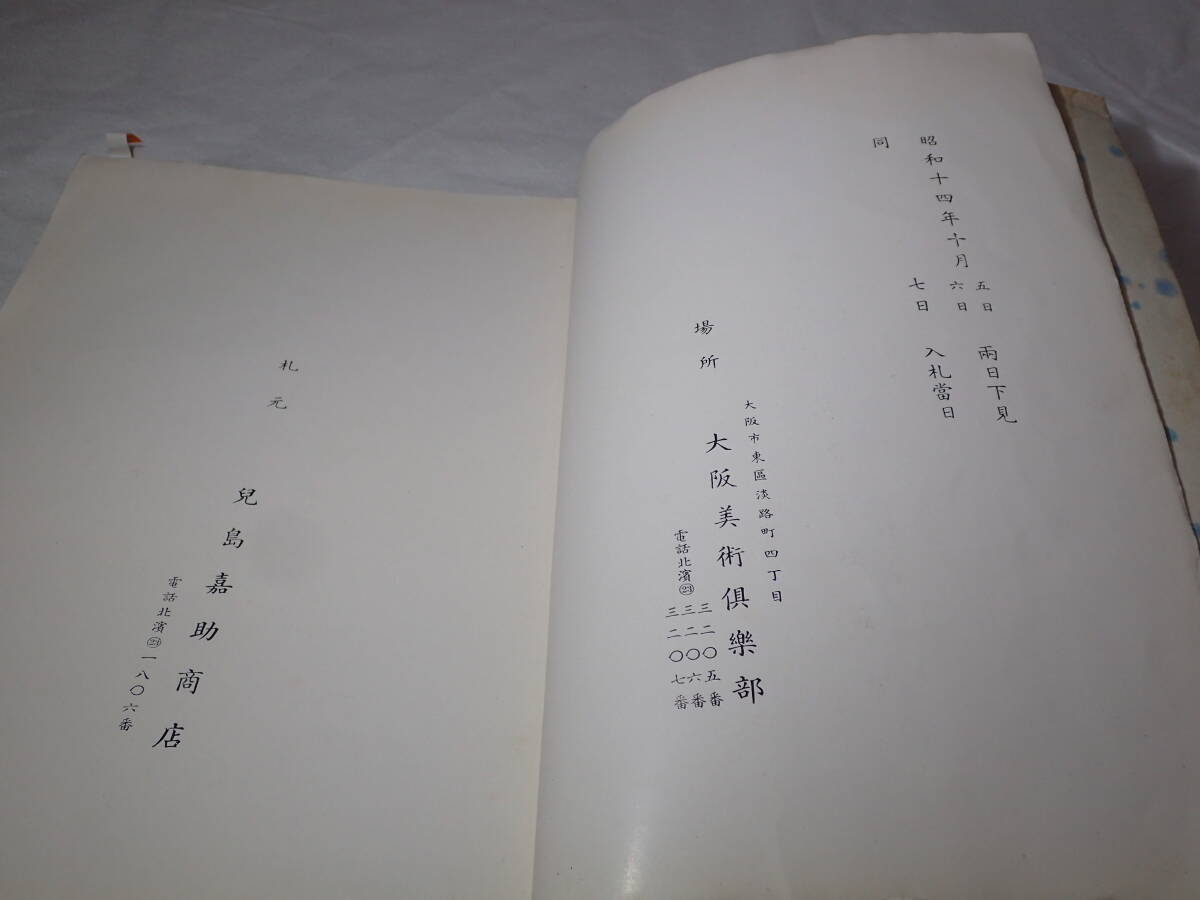 昭和十四年十月
五日
六日
兩日下見
同
七日
入札當日
場所
大阪市東區淡路町四丁目
大阪美術俱樂部
電話北濱㉓
三二〇五番
三二〇六番
三二〇七番
札元
兒島嘉助商店
電話北濱㉓一八〇六番